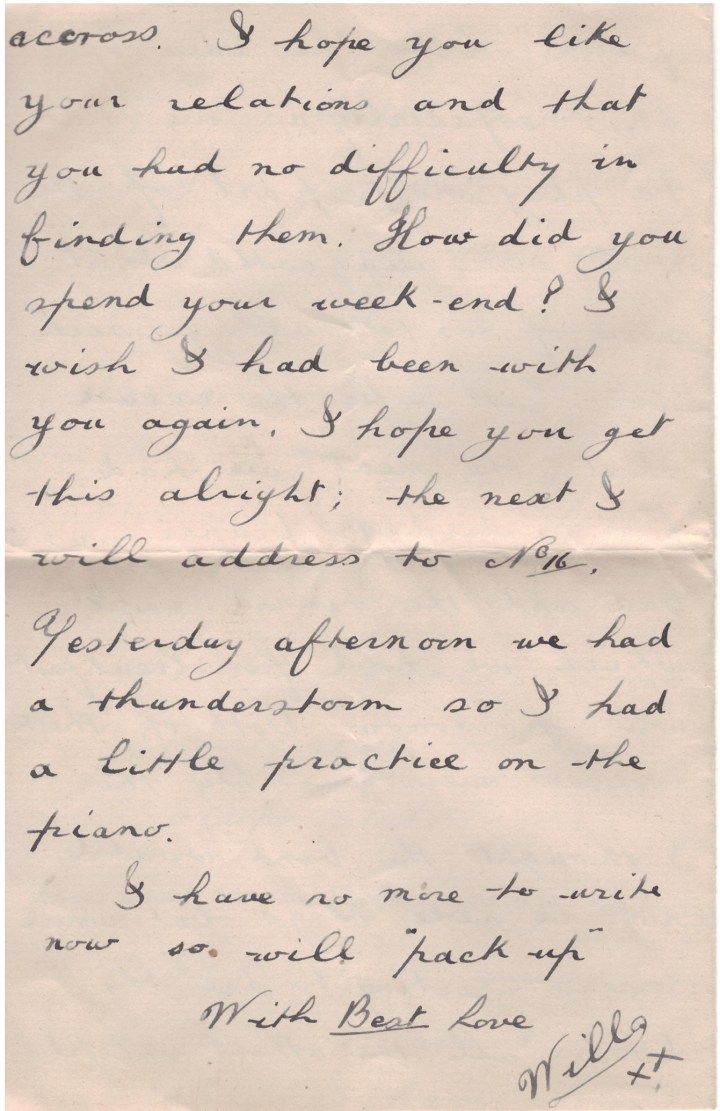 accross. I hope you like
your relations and that
you had no difficulty in
finding them. How did you
spend your week-end? I
wish I had been with
you again. I hope you get
this alright; the next I
will address to No 16.
Yesterday afternoon we had
a thunderstorm so I had
a little practice on the
piano.
I have no more to write
now so. will "pack up"
With Best Love
Will
xx